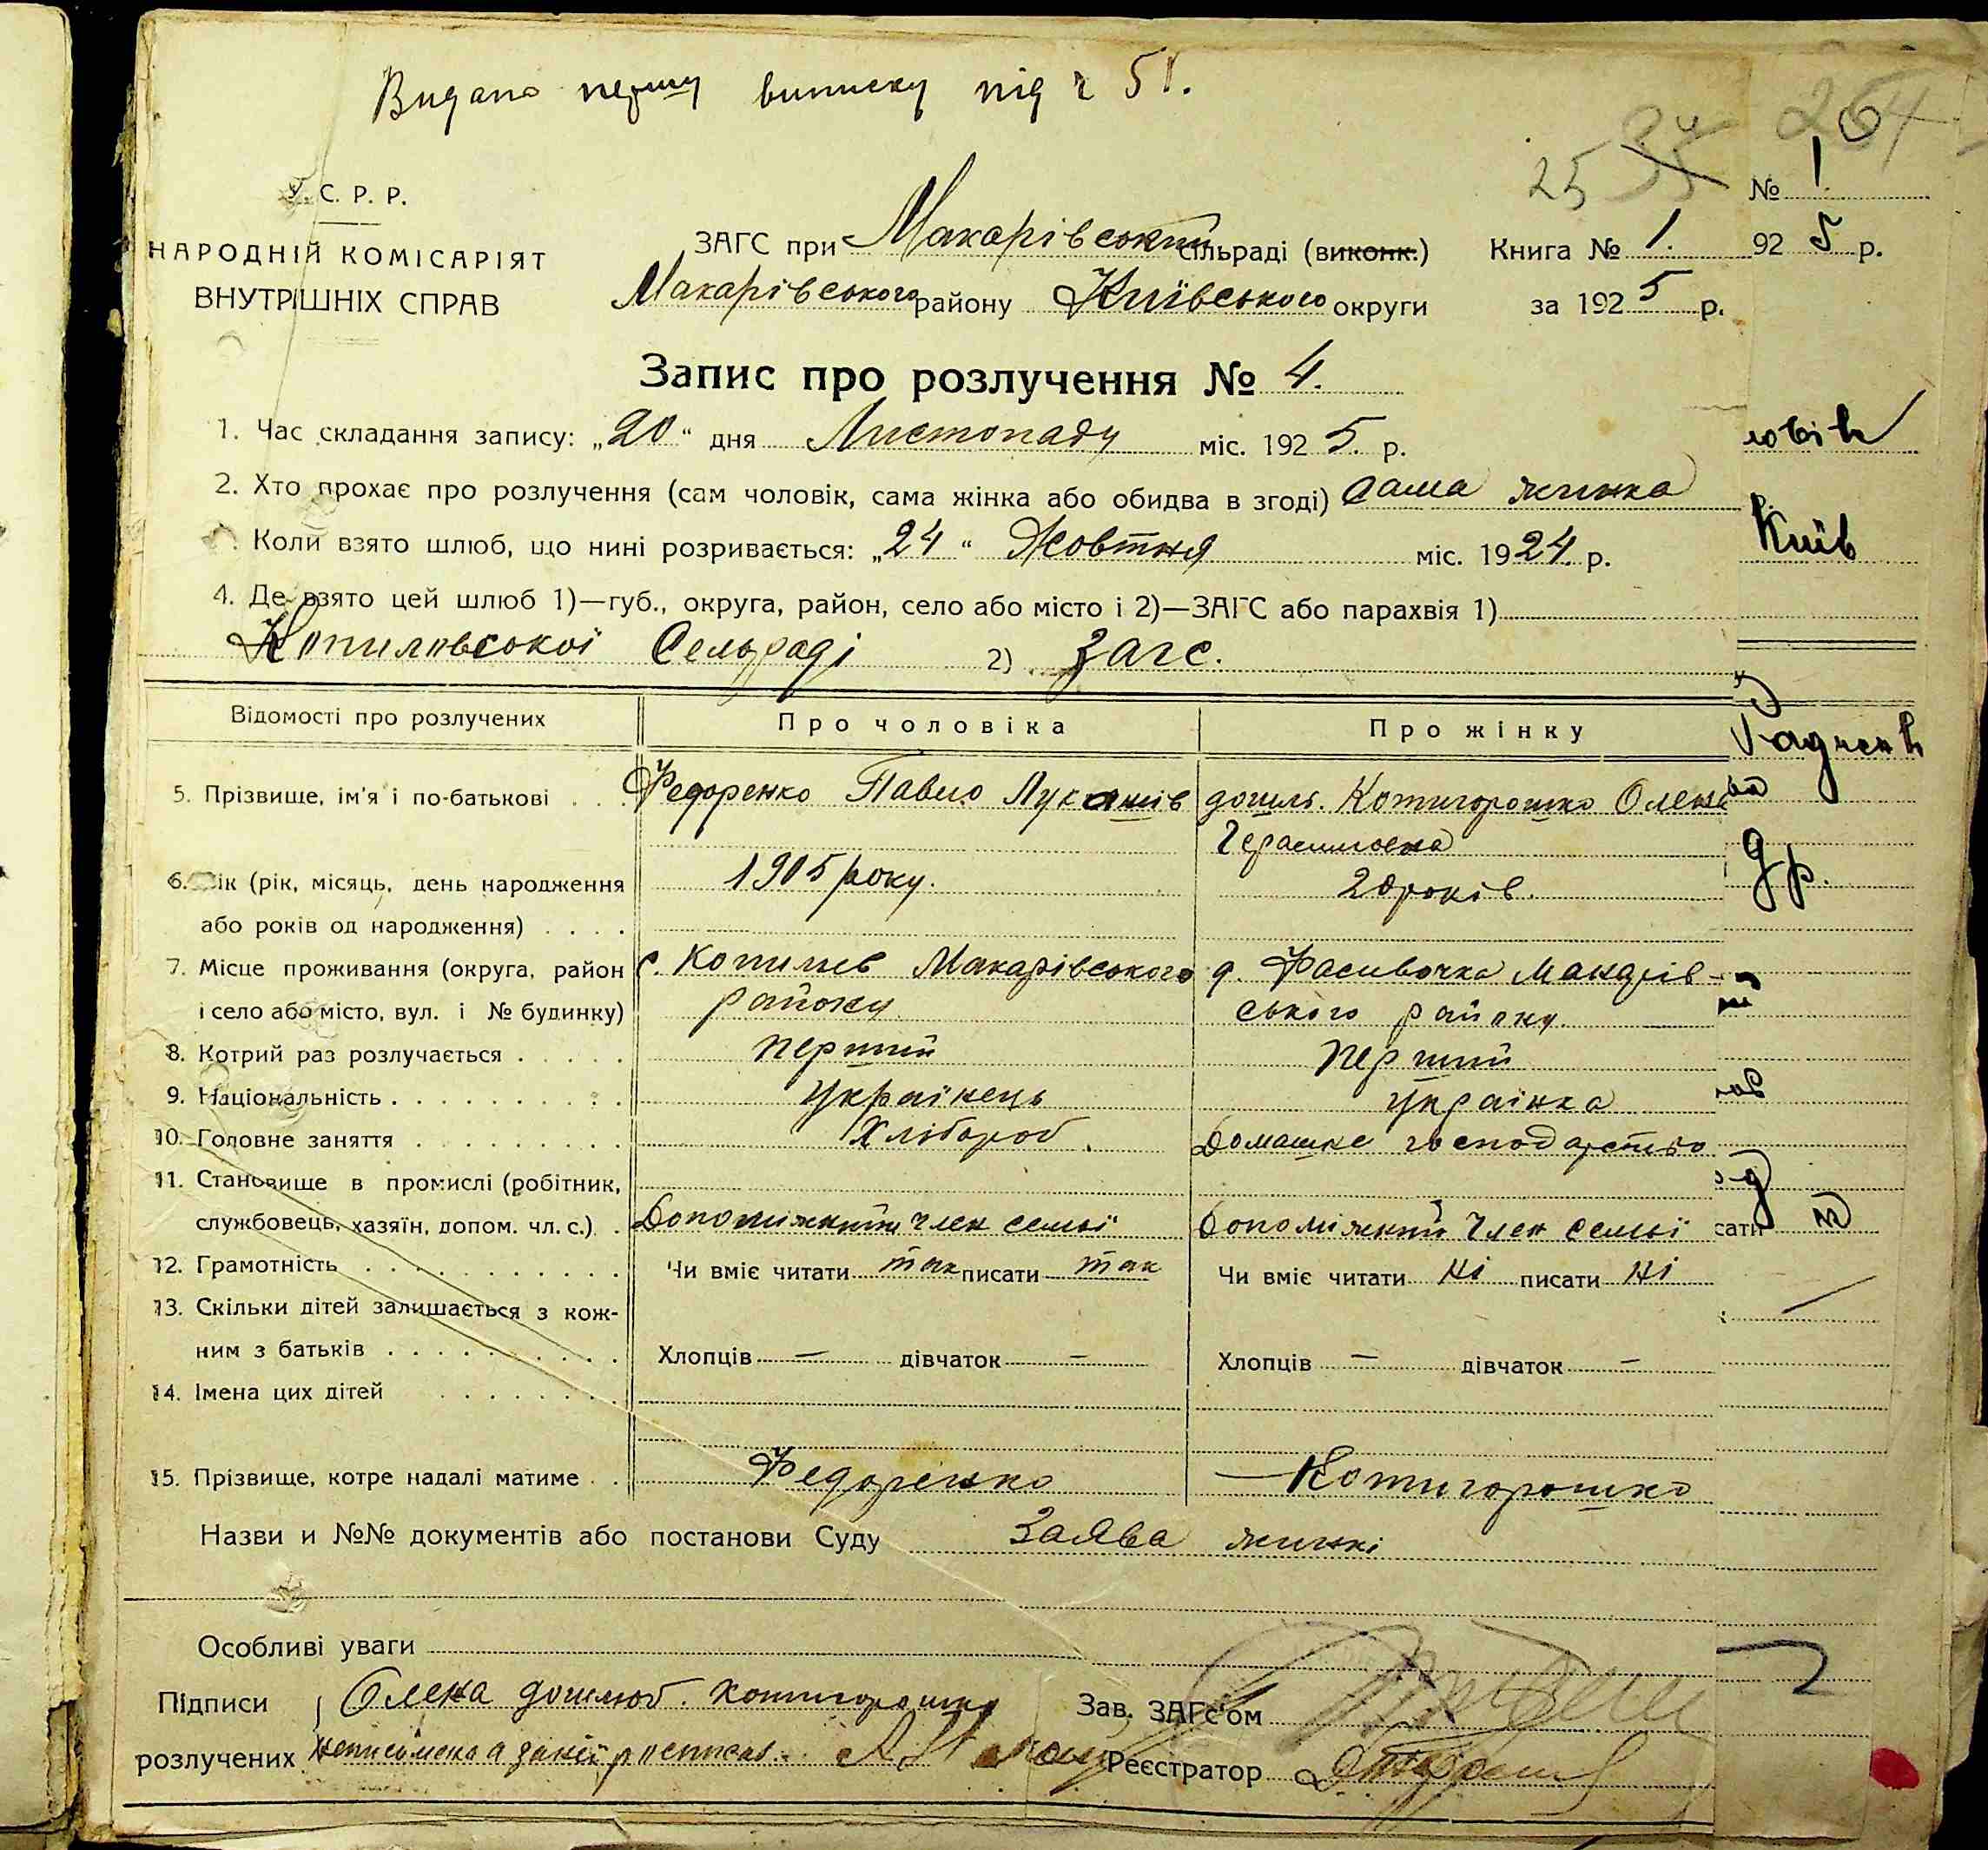 Видано першу виписку під ч 51.
264
25 35
У. С. Р. Р.
НАРОДНІЙ КОМІСАРІЯТ
ВНУТРІШНІХ СПРАВ
ЗАГС при Макарівський сільраді (виконк.) Книга № 1.
Макарівського району Київського округи за 1925 р.
№ 1.
92 5 р.
Запис про розлучення № 4.
1. Час складання запису: „20“ дня Листопаду міс. 1925. р.
2. Хто прохає про розлучення (сам чоловік, сама жінка або обидва в згоді) Сама жинка
Коли взято шлюб, що нині розривається: „24“ Жовтня міс. 1924. р.
Київ
4. Де взято цей шлюб 1)—губ., округа, район, село або місто і 2)—ЗАГС або парахвія 1)
Копиловської Сельраді 2) Загс.
Відомості про розлучених Про чоловіка Про жінку
5. Прізвище, ім'я і по-батькові . . Федоренко Павло Лукашів дошль. Котигорошко Олена
Герасимовна
6. Вік (рік, місяць, день народження 1905 року. 20 років.
або років од народження) . . . .
7. Місце проживання (округа, район с. Копилів Макарівського д. Фасивочка Макарів-
і село або місто, вул. і № будинку) району ського району.
8. Котрий раз розлучається . . . . . перший перший
9. Національність . . . . . . . . . . Українець Українка
10. Головне заняття . . . . . . . . . Хлібороб. Домашнє господарство
11. Становище в промислі (робітник,
службовець, хазяїн, допом. чл. с.) . Допоміжний член семьї Допоміжний член семьї
12. Грамотність . . . . . . . . . . . Чи вміє читати так писати так Чи вміє читати ні писати ні
13. Скільки дітей залишається з кож-
ним з батьків . . . . . . . . . . Хлопців — дівчаток — Хлопців — дівчаток —
14. Імена цих дітей . . . . . . . .
15. Прізвище, котре надалі матиме . . Федоренко Котигорошко
Назви и №№ документів або постанови Суду Заява жинкі
Особливі уваги
Підписи Олена дошлюб. Котигорошко Зав. ЗАГС'ом
розлучених неписьмена а за неї росписас Реєстратор